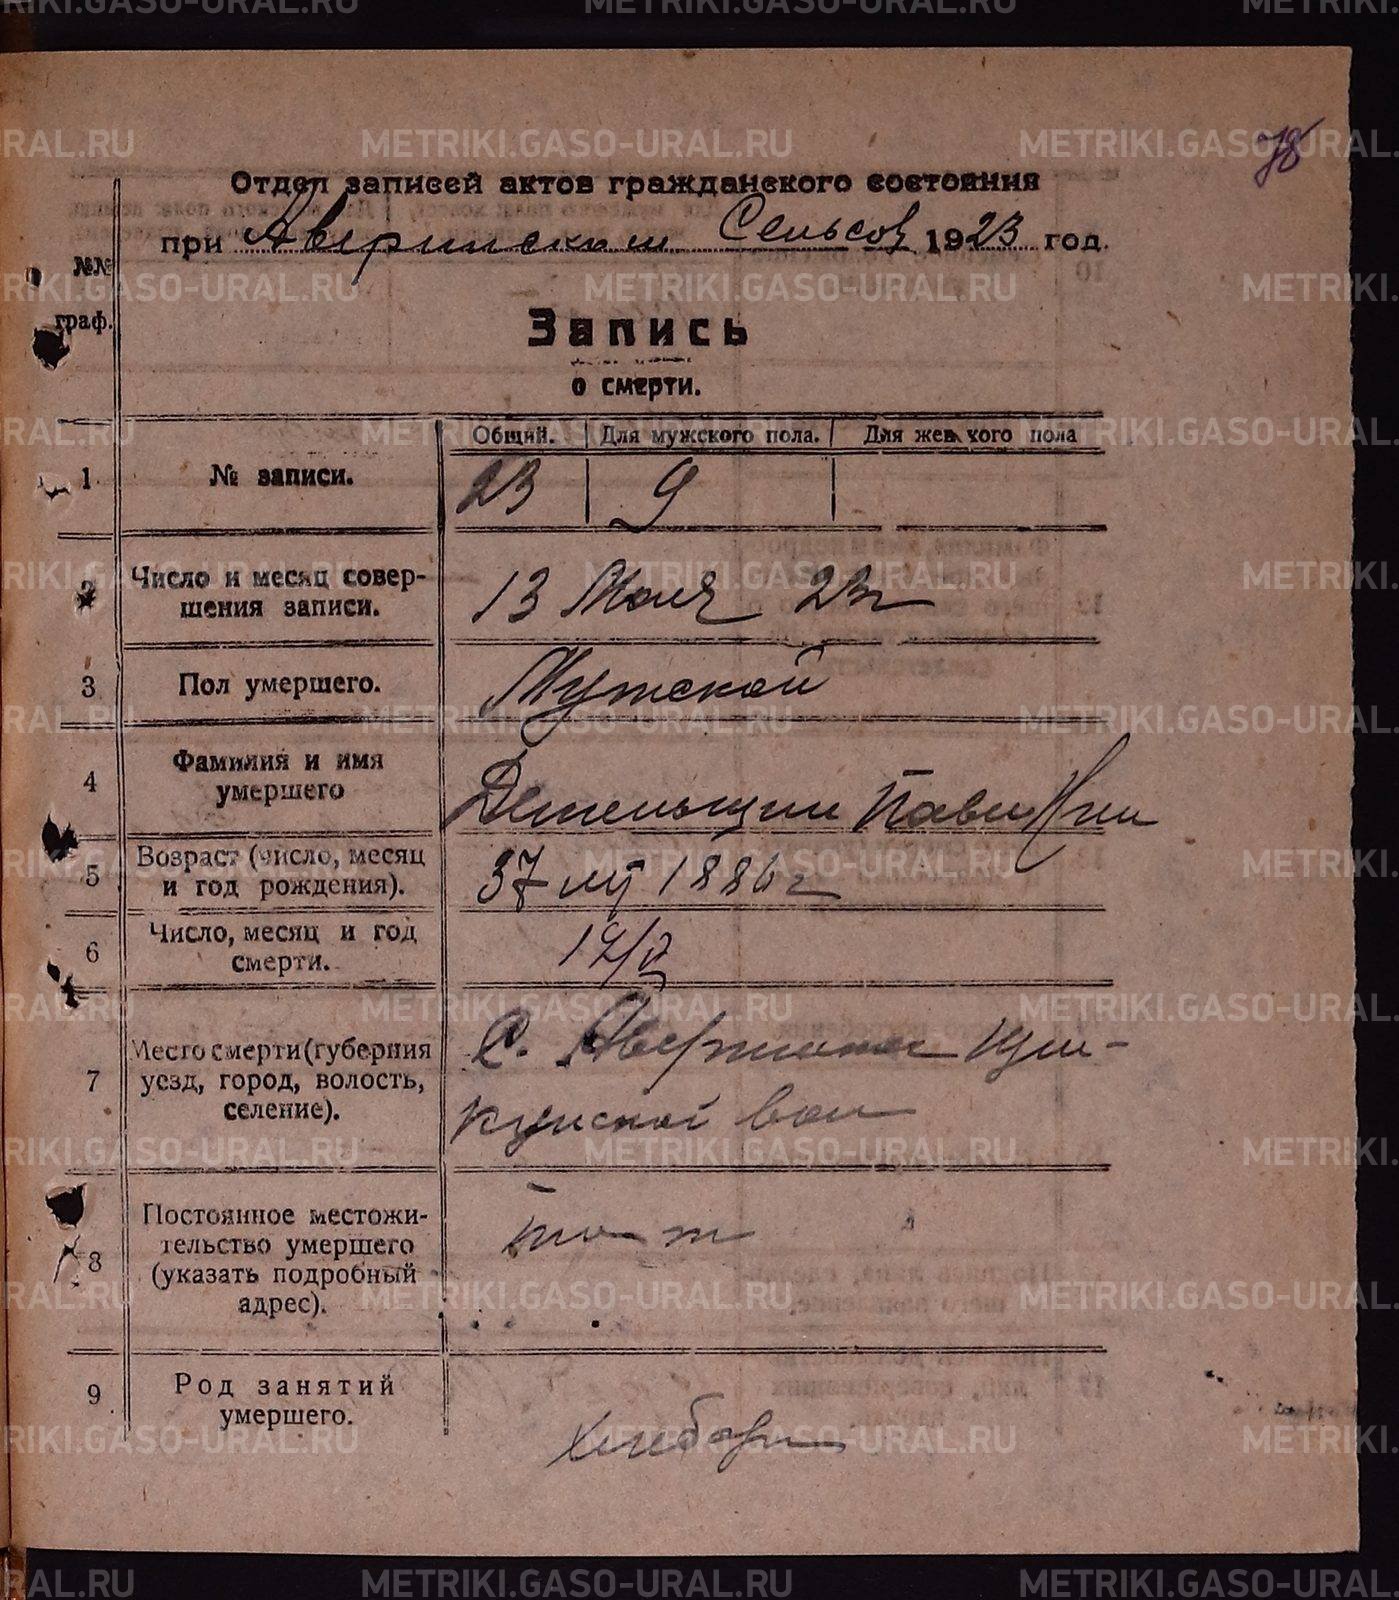 METRIKI.GASO-URAL.RU
78
Отдел записей актов гражданского состояния
при Аверинском Сельсов 1923 год.
№№
граф.
Запись
о смерти.
Общий. Для мужского пола. Для женского пола
1 № записи. 23 9
2 Число и месяц совер-
шения записи. 13 Мая 23г
3 Пол умершего. Мужской
4 Фамилия и имя
умершего
5 Возраст (число, месяц
и год рождения). 37 лет 1886 г
6 Число, месяц и год
смерти. 12/V
7 Место смерти (губерния
уезд, город, волость,
селение). С. Аверинское
вол
8 Постоянное местожи-
тельство умершего
(указать подробный
адрес).
9 Род занятий
умершего. Хлебороб